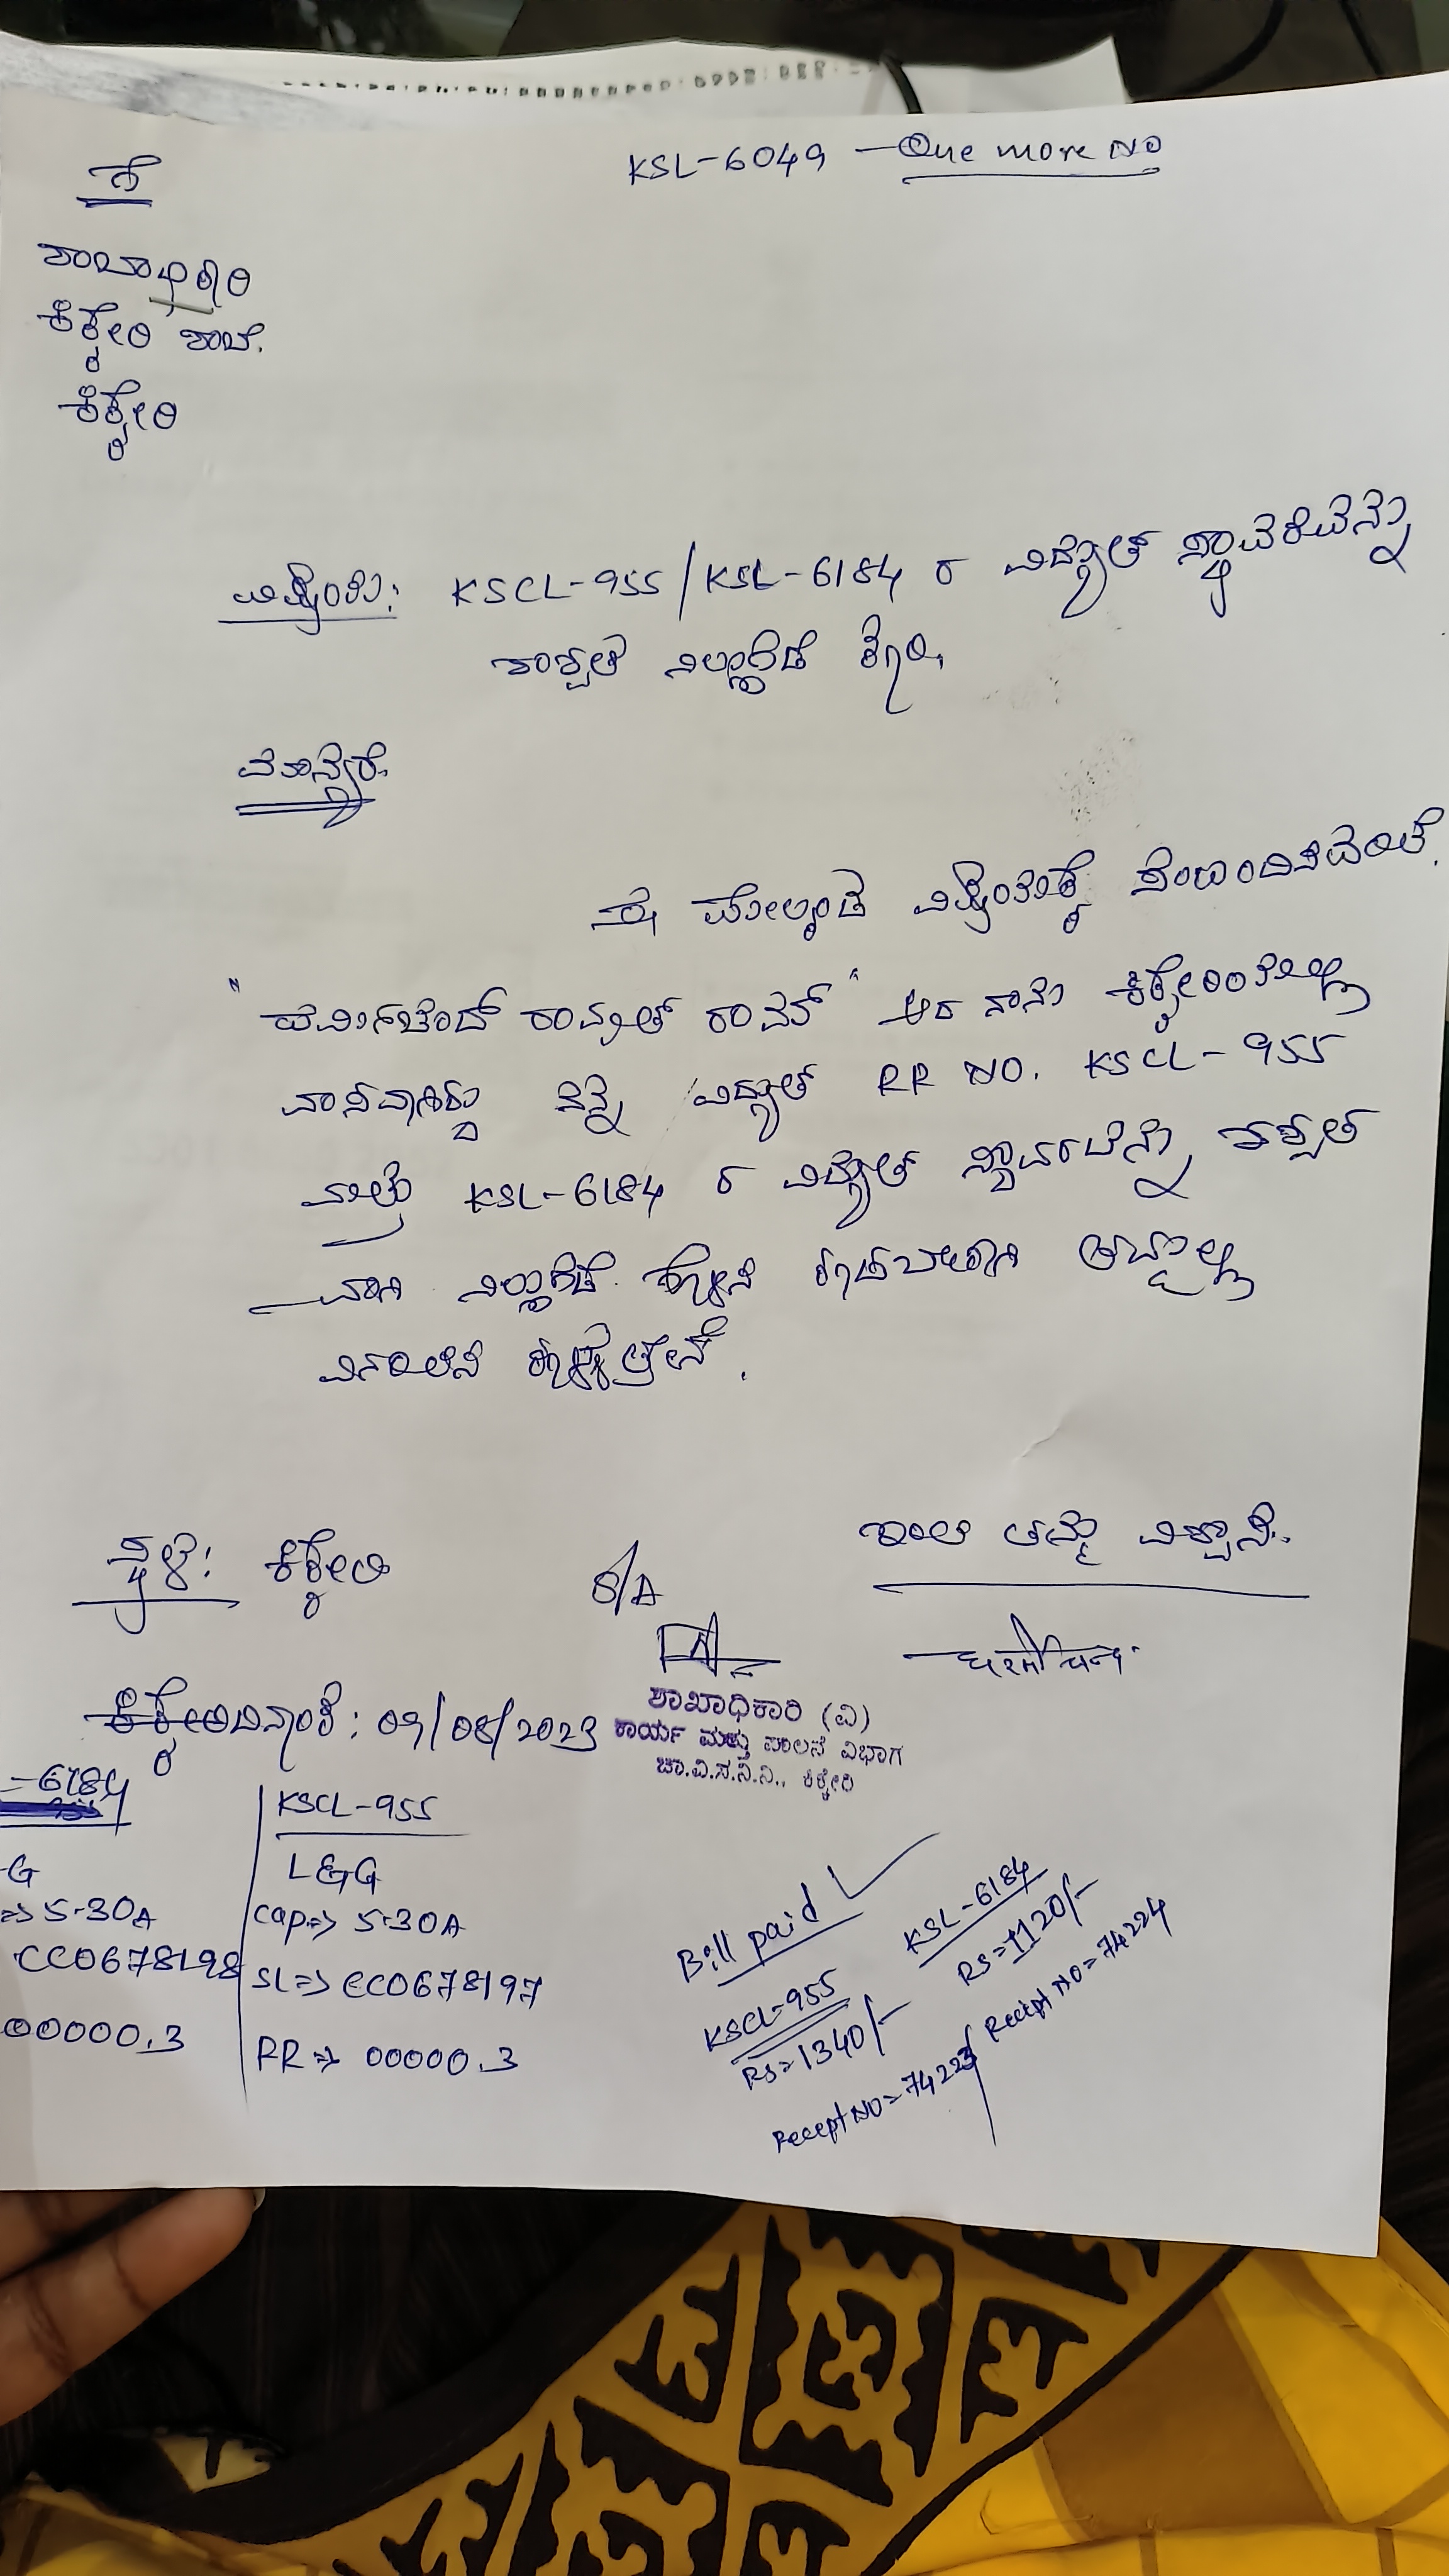 KSL-6049 — One more NO
ಗೆ
ಶಾಖಾಧಿಕಾರಿ
ಕಿಕ್ಕೇರಿ ಶಾಖೆ.
ಕಿಕ್ಕೇರಿ
ವಿಷಯ: KSCL-955/KSL-6184 ರ ವಿದ್ಯುತ್ ಸ್ಥಾವರವನ್ನು
ಶಾಶ್ವತ ನಿಲುಗಡೆ ಕೋರಿ.
ಮಾನ್ಯರೆ,
ಈ ಮೇಲ್ಕಂಡ ವಿಷಯಕ್ಕೆ ಸಂಬಂಧಿಸಿದಂತೆ.
" ಧರ್ಮಿಚಂದ್ ರಾವತ್ ರಾಮ್ " ಆದ ನಾನು ಕಿಕ್ಕೇರಿಯಲ್ಲಿ
ವಾಸವಾಗಿದ್ದು ನನ್ನ ವಿದ್ಯುತ್ RR NO. KSCL-955
ಮತ್ತು KSL-6184 ರ ವಿದ್ಯುತ್ ಸ್ಥಾವರವನ್ನು ಶಾಶ್ವತ
ವಾಗಿ ನಿಲುಗಡೆ ತಮ್ಮಲ್ಲಿ
ಸ್ಥಳ: ಕಿಕ್ಕೇರಿ
ಇಂತಿ ತಮ್ಮ ವಿಶ್ವಾಸಿ.
ದಿನಾಂಕ: 09/08/2023
ಶಾಖಾಧಿಕಾರಿ (ವಿ)
ಕಾರ್ಯ ಮತ್ತು ಪಾಲನೆ ವಿಭಾಗ
ಚಾ.ವಿ.ಸ.ನಿ.ನಿ., ಕಿಕ್ಕೇರಿ
-6184
G
=> 5-30A
CC0678198
00000.3
KSCL-955
L&G
Cap=> 5-30A
SL=> CC0678197
RR=> 00000.3
Bill paid
KSCL-955
Rs=1340/-
Recept NO=74223
KSL-6184
Rs=1120/-
Recept NO=74224